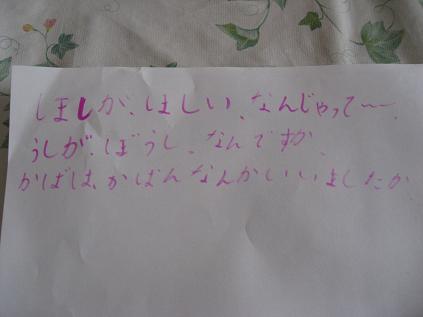 しましが、ほしい、なんじゃって〜〜、
うしが、ぼうし、なんですか、
かばは、かばんなんかいいましたか